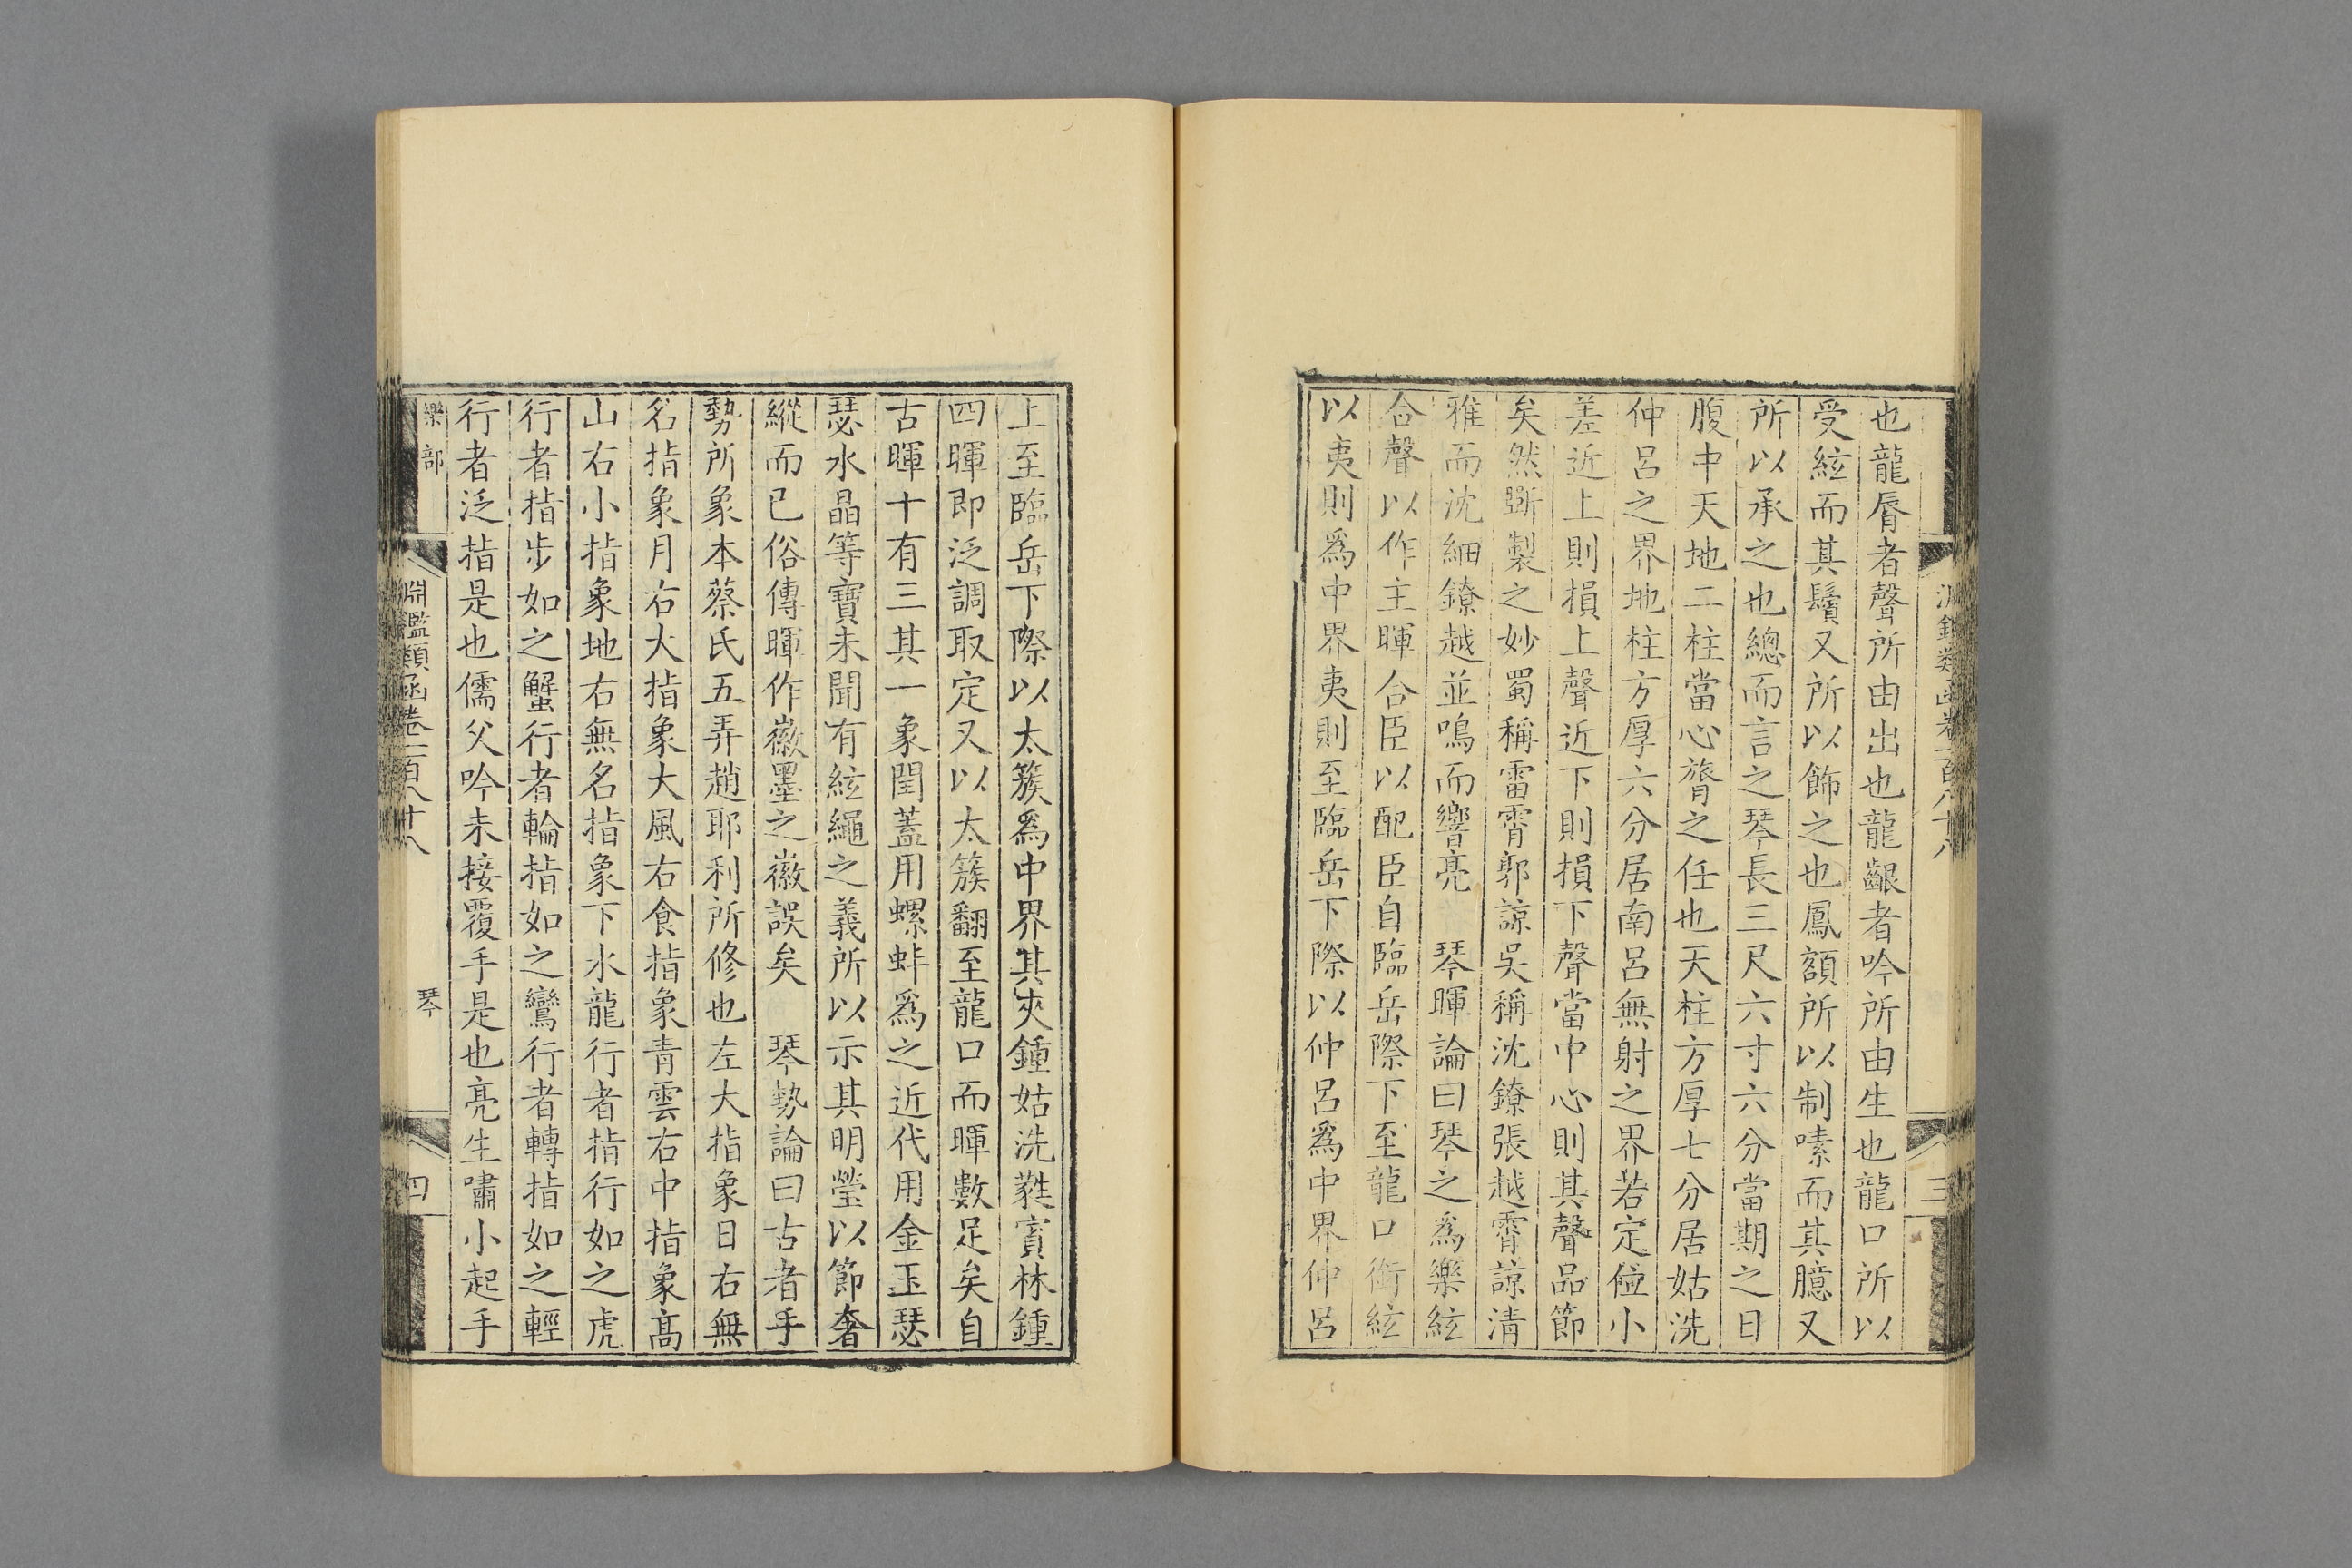 也龍脣者聲所由出也龍齦者吟所由生也龍口所以
受絃而其鬢又所以飾之也鳳額所以制嗉而其臆又
所以承之也總而言之琴長三尺六寸六分當期之日
腹中天地二柱當心膂之任也天柱方厚七分居姑洗
仲呂之界地柱方厚六分居南呂無射之界若定位小
差近上則損上聲近下則損下聲當中心則其聲品節
矣然斲製之妙蜀稱雷霄郭諒吳稱沈鐐張越霄諒清
雅而沈細鐐越並鳴而響亮　琴暉論曰琴之爲樂絃
合聲以作主暉合臣以配臣自臨岳際下至龍口銜絃
以夷則爲中界夷則至臨岳下際以仲呂爲中界仲呂
上至臨岳下際以太簇爲中界其夾鍾姑洗蕤賓林鍾
四暉即泛調取定又以太簇翻至龍口而暉數足矣自
古暉十有三其一象閏蓋用螺蚌爲之近代用金玉瑟
瑟水晶等寶未聞有絃繩之義所以示其明瑩以節奢
縱而已俗傳暉作徽墨之徽誤矣　琴勢論曰古者手
勢所象本蔡氏五弄趙耶利所修也左大指象日右無
名指象月右大指象大風右食指象青雲右中指象高
山右小指象地右無名指象下水龍行者指行如之虎
行者指步如之蟹行者輪指如之鸞行者轉指如之輕
行者泛指是也儒父吟未接覆手是也亮生嘯小起手
樂部
淵鑑類函卷一百八十八
琴
四